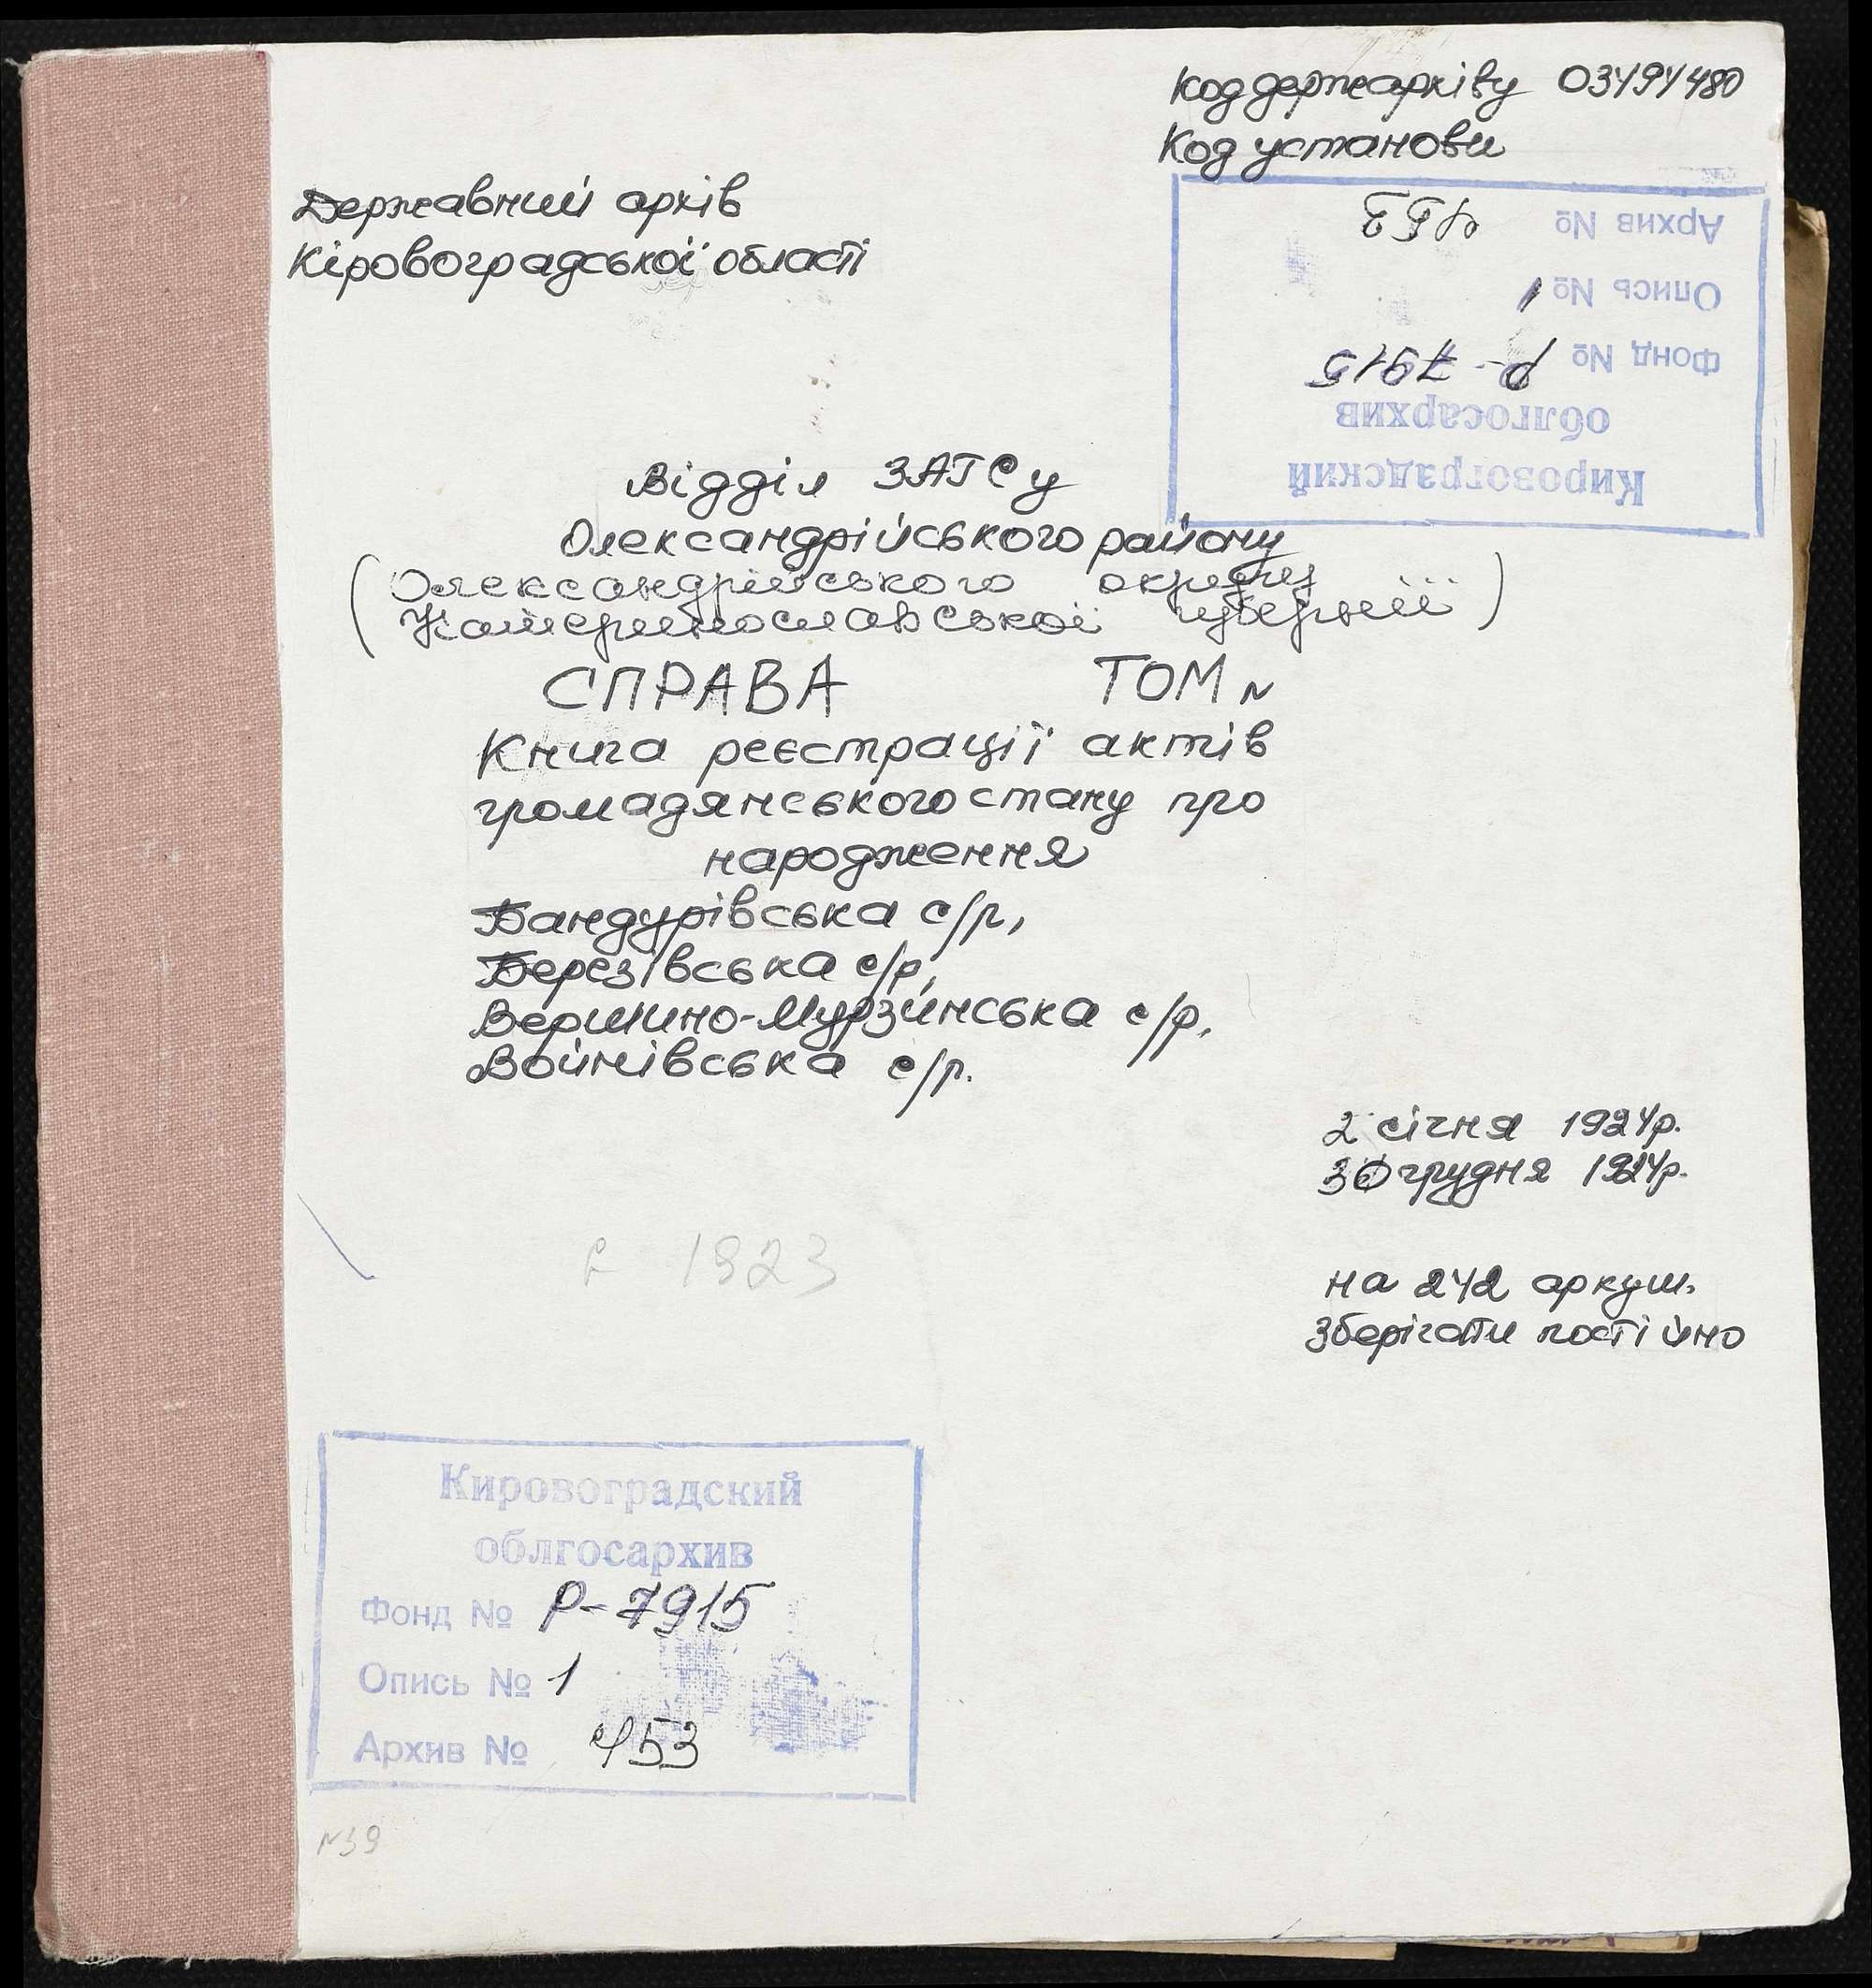 Код держархіву 03494480
Код установи
Державний архів
Кіровоградської області
Кировоградский
облгосархив
Фонд № Р-7915
Опись № 1
Архив № 453
Відділ ЗАГСу
Олександрійського району
(Олександрійського округу
Катеринославської губернії)
СПРАВА ТОМ N
Книга реєстрації актів
громадянського стану про
народження
Бандурівська с/р,
Березівська с/р,
Вершино-Мурзинська с/р,
Войнівська с/р.
2 січня 1924р.
30 грудня 1924р.
1923
на 242 аркуш.
Зберігати постійно
Кировоградский
облгосархив
Фонд № Р-7915
Опись № 1
Архив № 453
N39